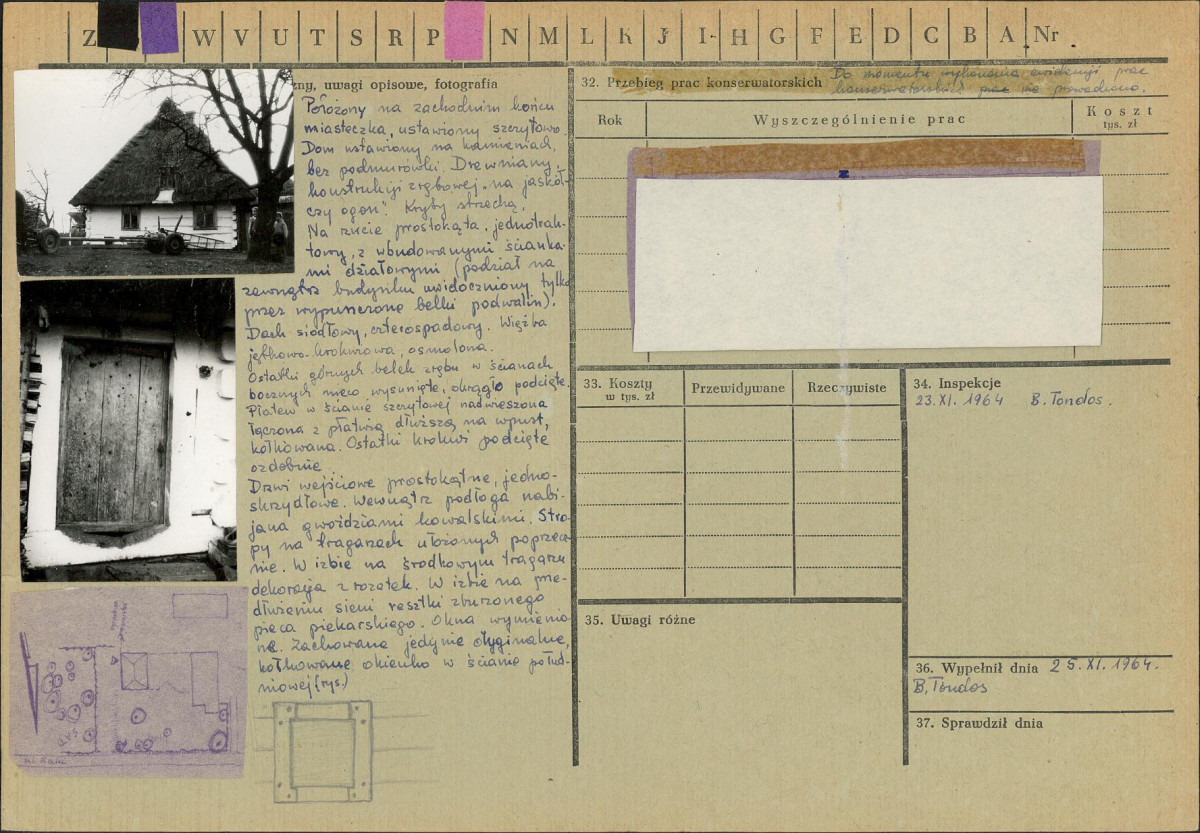 Z W V U T S R P N M L K J I H G F E D C B A Nr
zny, uwagi opisowe, fotografia
Położony na zachodnim końcu
miasteczka, ustawiony szczytowo.
Dom ustawiony na kamieniach,
bez podmurówki. Drewniany,
konstrukcji zrębowej „na jaskół-
czy ogon". Kryty strzechą.
Na rzucie prostokąta, jednotrak-
towy, z wbudowanymi ścianka-
mi działowymi (podział na
zewnątrz budynku uwidoczniony tylko
przez wypuszczone belki podwalin).
Dach siodłowy, czterospadowy. Więźba
jętkowo-krokwiowa, osmolona.
Ostatki górnych belek zrębu w ścianach
bocznych nieco wysunięte, okrągło podcięte.
Płatew w ścianie szczytowej nadwieszona
łączona z płatwią dłuższą na wpust,
kołkowana. Ostatki krokwi podcięte
ozdobnie.
Drzwi wejściowe prostokątne, jedno-
skrzydłowe. Wewnątrz podłoga nabi-
jana gwoździami kowalskimi. Stro-
py na tragarzach ułożonych poprzecz-
nie. W izbie na środkowym tragarzu
dekoracja z rozetek. W izbie na prze-
dłużeniu sieni resztki zburzonego
pieca piekarskiego. Okna wymienio-
ne. Zachowane jedynie oryginalne,
kołkowane okienko w ścianie połud-
niowej (rys.)
32. Przebieg prac konserwatorskich Do momentu wykonania ewidencji prac
konserwatorskich nie prowadzono.
Rok Wyszczególnienie prac Koszt
tys. zł
33. Koszty
w tys. zł
Przewidywane Rzeczywiste
34. Inspekcje
23.XI. 1964 B. Tondos.
35. Uwagi różne
36. Wypełnił dnia 25.XI. 1964.
B. Tondos
37. Sprawdził dnia